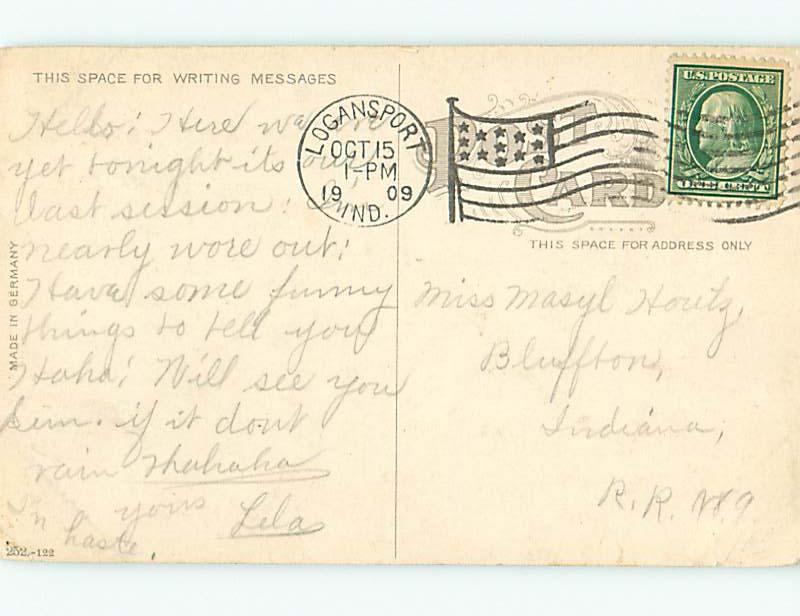 THIS SPACE FOR WRITING MESSAGES
Hello! Here we are
yet tonight its our
last session!
nearly wore out!
Have some funny
things to tell you
Haha! Will see you
Sun. if it dont
rain Mahahaha
yours
In haste, Lela
252.-122
MADE IN GERMANY
LOGANSPORT
OCT 15
1-PM
19 09
IND.
U.S. POSTAGE
ONE CENT
CARD
THIS SPACE FOR ADDRESS ONLY
Miss Masyl Houtz,
Bluffton,
Indiana,
R.R. No 9